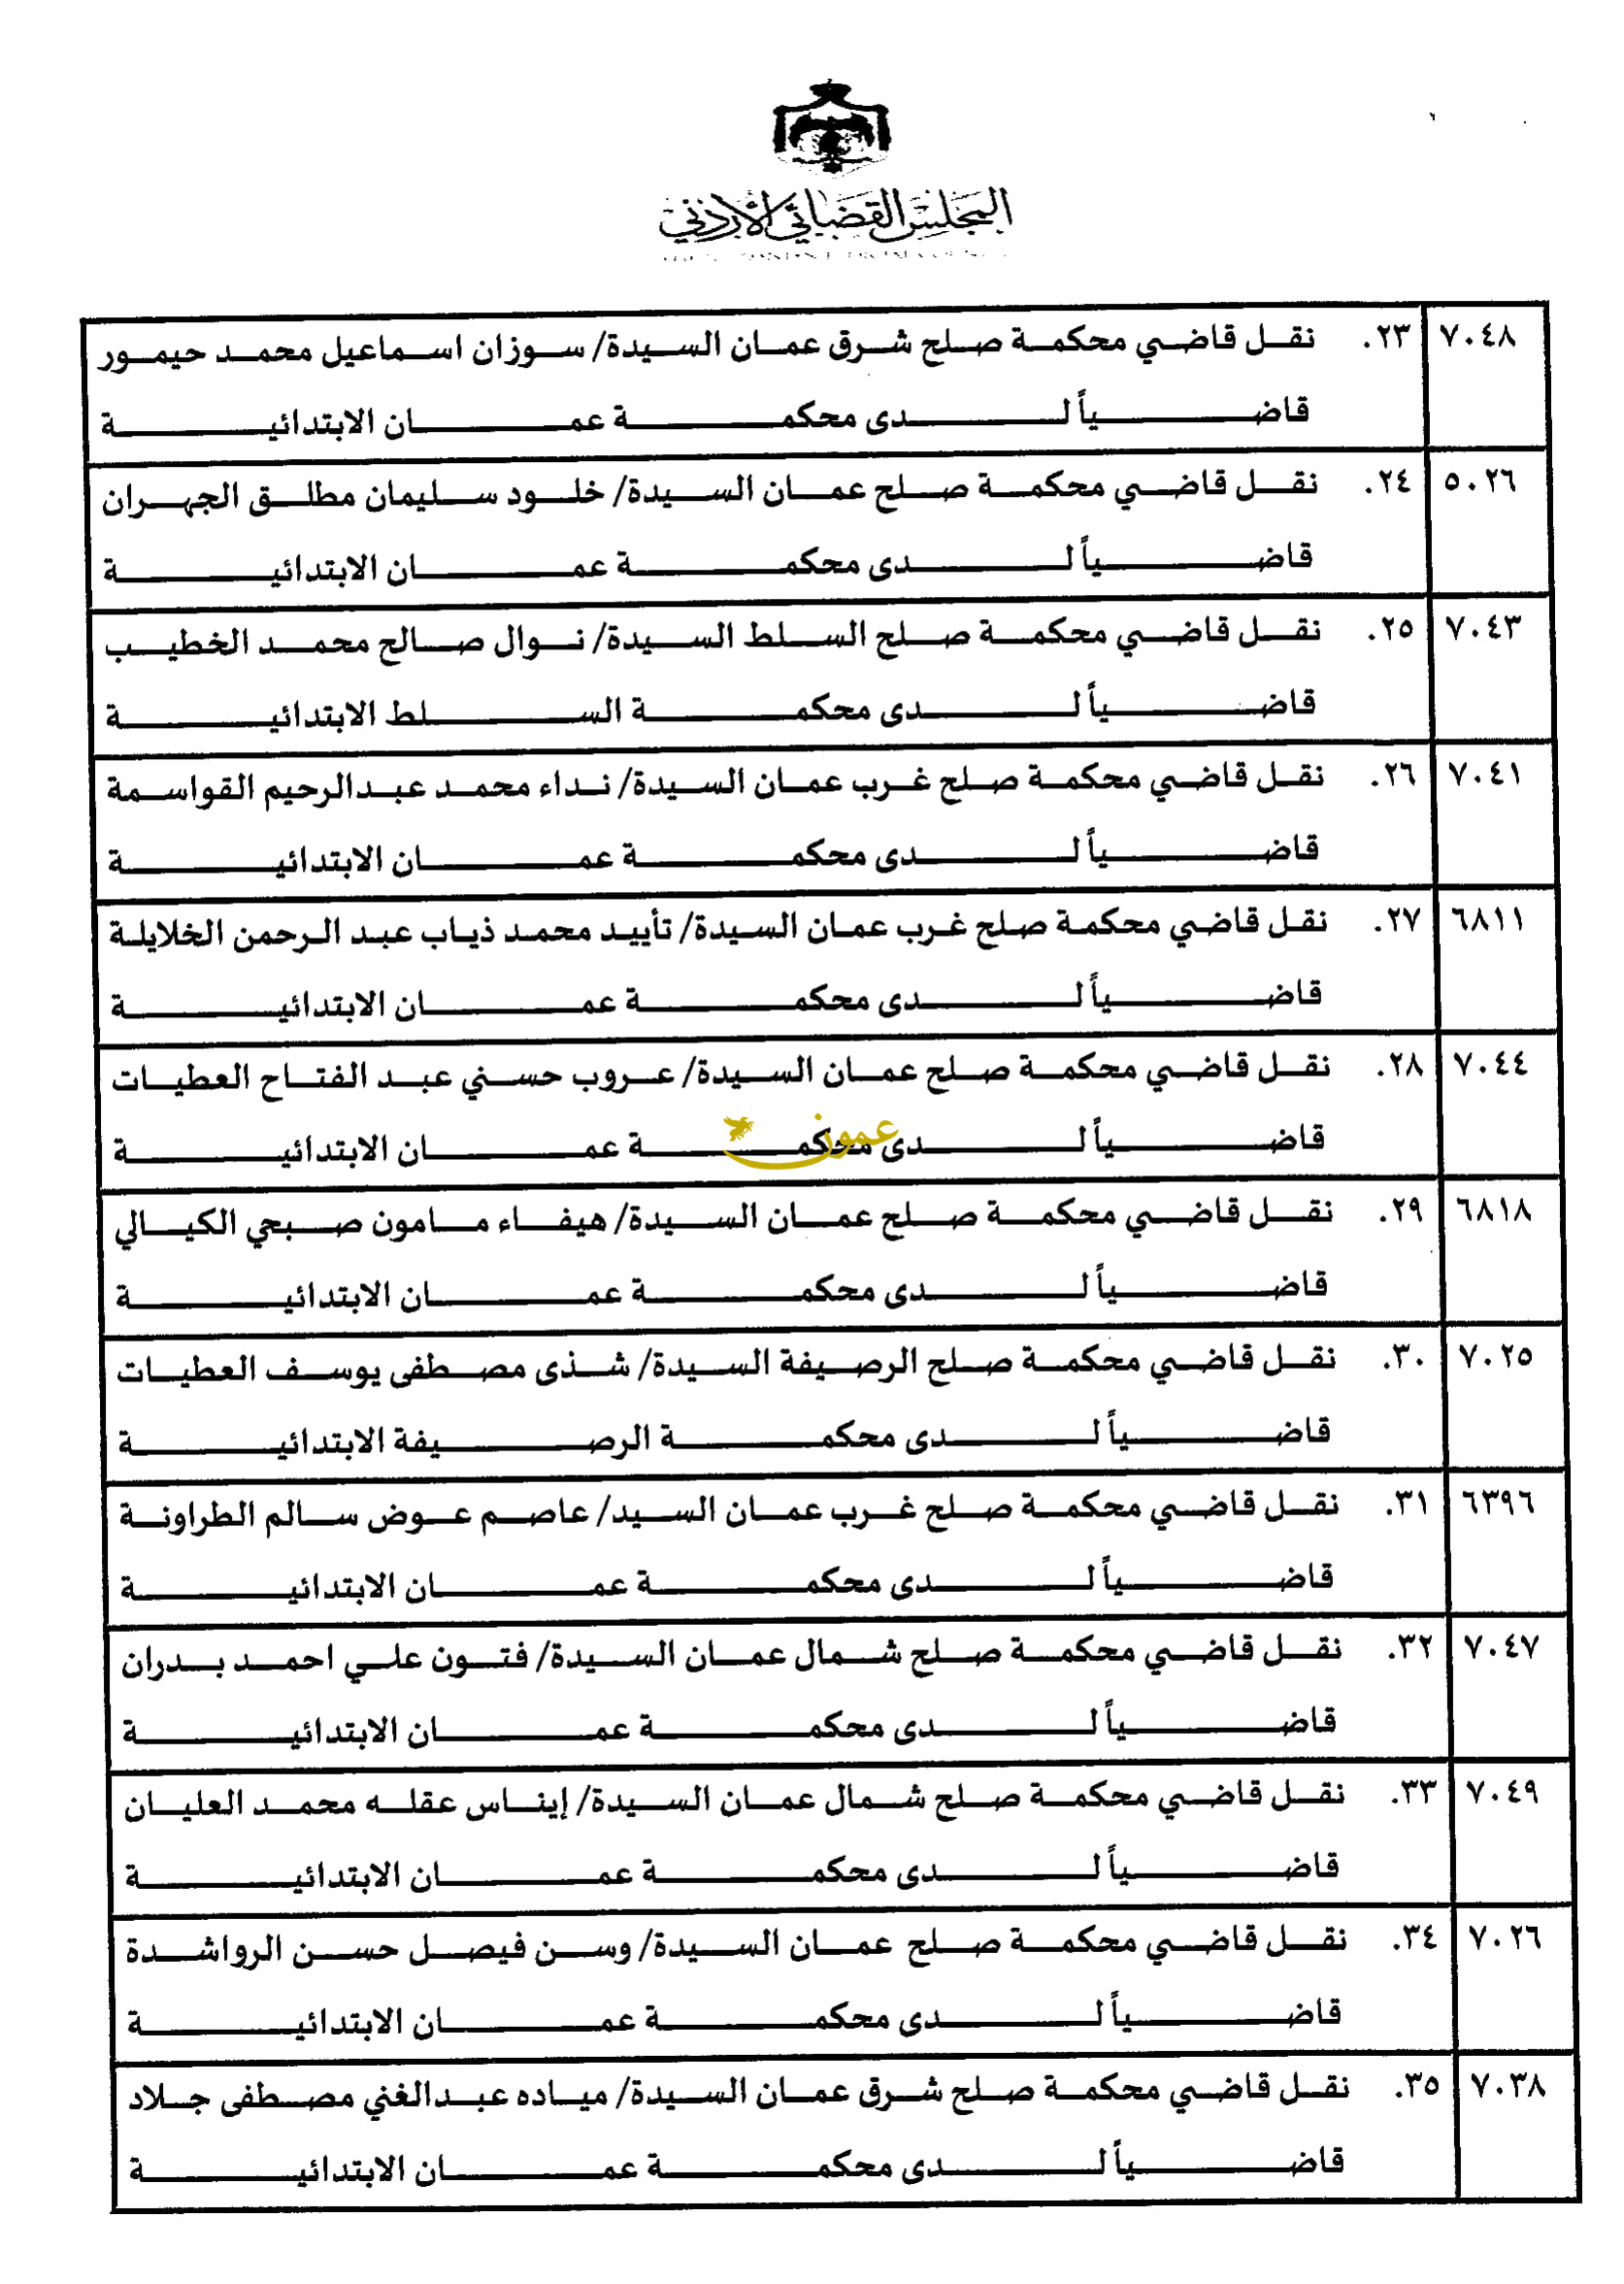 المجلس القضائي الأردني
٧٠٤٨ ٢٣. نقل قاضي محكمة صلح شرق عمان السيدة/ سوزان اسماعيل محمد حيمور
قاضياً لدى محكمة عمان الابتدائية
٥٠٢٦ ٢٤. نقل قاضي محكمة صلح عمان السيدة/ خلود سليمان مطلق الجهران
قاضياً لدى محكمة عمان الابتدائية
٧٠٤٣ ٢٥. نقل قاضي محكمة صلح السلط السيدة/ نوال صالح محمد الخطيب
قاضياً لدى محكمة السلط الابتدائية
٧٠٤١ ٢٦. نقل قاضي محكمة صلح غرب عمان السيدة/ نداء محمد عبدالرحيم القواسمة
قاضياً لدى محكمة عمان الابتدائية
٦٨١١ ٢٧. نقل قاضي محكمة صلح غرب عمان السيدة/ تأييد محمد ذياب عبد الرحمن الخلايلة
قاضياً لدى محكمة عمان الابتدائية
٧٠٤٤ ٢٨. نقل قاضي محكمة صلح عمان السيدة/ عروب حسني عبد الفتاح العطيات
قاضياً لدى محكمة عمان الابتدائية
عمون
٦٨١٨ ٢٩. نقل قاضي محكمة صلح عمان السيدة/ هيفاء مامون صبحي الكيالي
قاضياً لدى محكمة عمان الابتدائية
٧٠٢٥ ٣٠. نقل قاضي محكمة صلح الرصيفة السيدة/ شذى مصطفى يوسف العطيات
قاضياً لدى محكمة الرصيفة الابتدائية
٦٣٩٦ ٣١. نقل قاضي محكمة صلح غرب عمان السيد/ عاصم عوض سالم الطراونة
قاضياً لدى محكمة عمان الابتدائية
٧٠٤٧ ٣٢. نقل قاضي محكمة صلح شمال عمان السيدة/ فتون علي احمد بدران
قاضياً لدى محكمة عمان الابتدائية
٧٠٤٩ ٣٣. نقل قاضي محكمة صلح شمال عمان السيدة/ إيناس عقله محمد العليان
قاضياً لدى محكمة عمان الابتدائية
٧٠٢٦ ٣٤. نقل قاضي محكمة صلح عمان السيدة/ وسن فيصل حسن الرواشدة
قاضياً لدى محكمة عمان الابتدائية
٧٠٣٨ ٣٥. نقل قاضي محكمة صلح شرق عمان السيدة/ مياده عبدالغني مصطفى جلاد
قاضياً لدى محكمة عمان الابتدائية